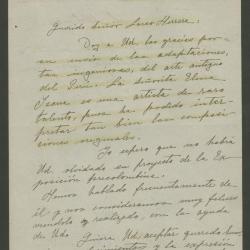 Querido Señor Larco Herrera:
Doy a Ud. las gracias por
su envio de las adaptaciones,
tan ingeniosas, del arte antiguo
del Perú. La Señorita Elena
Izcue es una artista de raro
talento, pues ha podido inter-
pretar tan bien las composi-
ciones originales.
Yo espero que no habrá
Ud. olvidado su proyecto de la Ex-
posición precolombina.
Hemos hablado frecuentemente de
él y nos consideraremos muy felices
viendolo realizado, con la ayuda
de Uds. Quiera Ud. aceptar querido
y la expresión